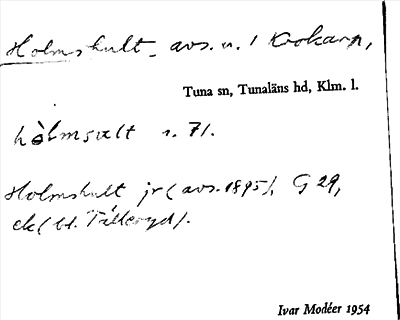 Holmshult - avs. u. 1 Krokarp,
Tuna sn, Tunaläns hd, Klm. l.
hòlmsælt s. 71.
Holmshult jr (avs. 1895), G 29,
ek (bl. Tälleryd).
Ivar Modéer 1954